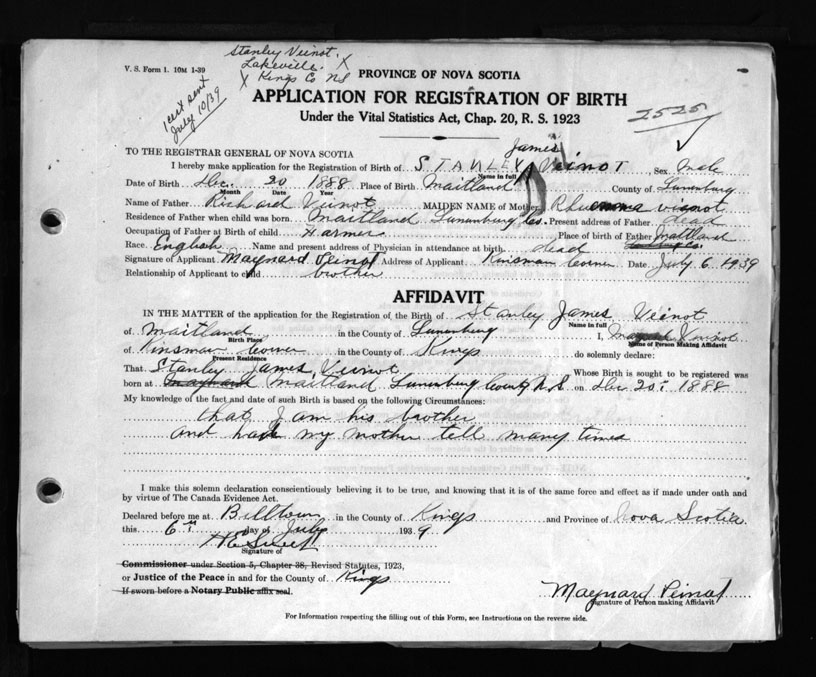 V. S. Form 1. 10M 1-39
Stanley Veinot. X
Lakeville.
X Kings Co NS
1 cert sent
July 10/39
PROVINCE OF NOVA SCOTIA
APPLICATION FOR REGISTRATION OF BIRTH
Under the Vital Statistics Act, Chap. 20, R. S. 1923
2525
TO THE REGISTRAR GENERAL OF NOVA SCOTIA
James
I hereby make application for the Registration of Birth of STANLEY Veinot Sex Male
Name in full
Date of Birth Dec. 20 1888 Place of Birth Maitland County of Lunenburg
Month Date Year
Name of Father Richard Veinot MAIDEN NAME of Mother Veinot
Residence of Father when child was born Maitland Lunenburg Co. Present address of Father dead
Occupation of Father at Birth of child Farmer Place of birth of Father Maitland
Race English Name and present address of Physician in attendance at birth dead
Signature of Applicant Maynard Veinot Address of Applicant Kinsman Corner Date July 6 1939
Relationship of Applicant to child brother
AFFIDAVIT
IN THE MATTER of the application for the Registration of the Birth of Stanley James Veinot
Name in full
of Maitland in the County of Lunenburg I, Maynard Veinot
Birth Place Name of Person making Affidavit
of Kinsman Corner in the County of Kings do solemnly declare:
Present Residence
That Stanley James Veinot Whose Birth is sought to be registered was
born at Maitland Lunenburg County N.S. on Dec 20th 1888
My knowledge of the fact and date of such Birth is based on the following Circumstances:
that I am his brother
and my mother tell many times
I make this solemn declaration conscientiously believing it to be true, and knowing that it is of the same force and effect as if made under oath and
by virtue of The Canada Evidence Act.
Declared before me at Billtown in the County of Kings and Province of Nova Scotia
this 6th day of July 1939
Signature of
Commissioner under Section 5, Chapter 38, Revised Statutes, 1923,
or Justice of the Peace in and for the County of Kings
If sworn before a Notary Public affix seal.
Maynard Veinot
Signature of Person making Affidavit
For Information respecting the filling out of this Form, see Instructions on the reverse side.